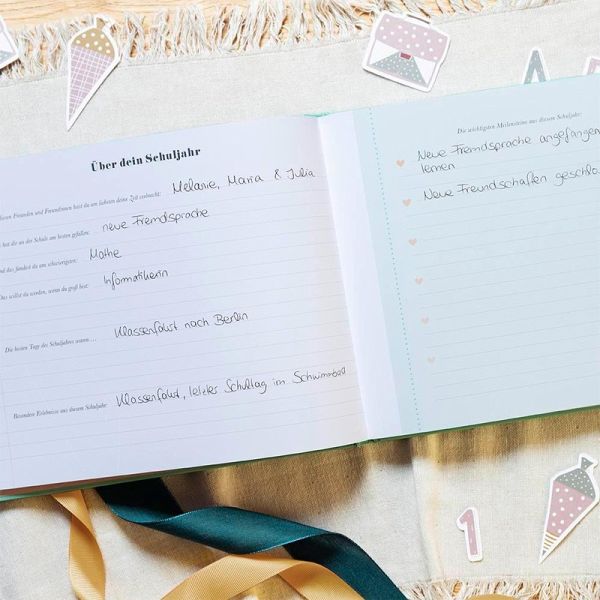 Über dein Schuljahr
diesen Freunden und Freundinnen hast du am liebsten deine Zeit verbracht: Melanie, Maria & Julia
hat dir an der Schule am besten gefallen: neue Fremdsprache
und das fandest du am schwierigsten: Mathe
Das willst du werden, wenn du groß bist: Informatikerin
Die besten Tage des Schuljahres waren... Klassenfahrt nach Berlin
Besondere Erlebnisse aus diesem Schuljahr: Klassenfahrt, letzter Schultag im Schwimmbad
Die wichtigsten Meilensteine aus diesem Schuljahr:
Neue Fremdsprache angefangen
lernen
Neue Freundschaften geschlo
A
1